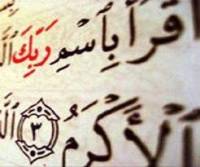 اقْرَأْ بِاسْمِ رَبِّكَ
الْأَكْرَمُ ٣